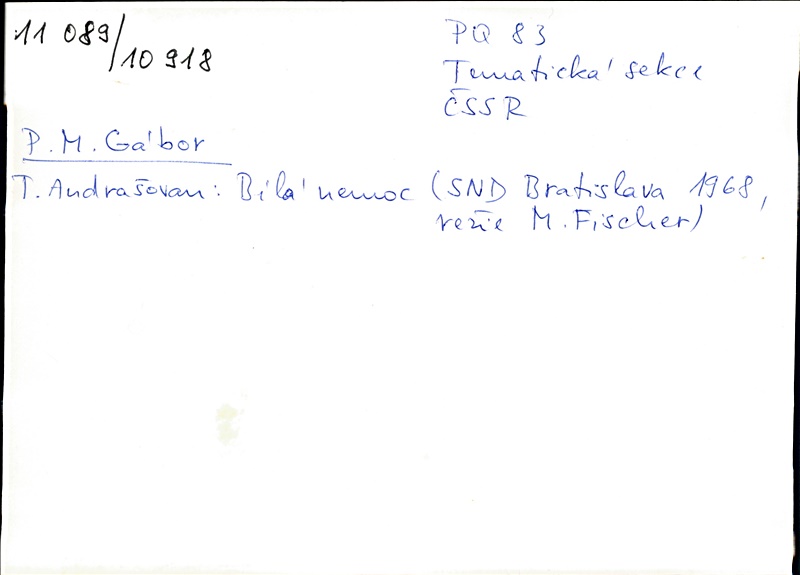 11 089/10 918
PQ 83
Tematická sekce
ČSSR
P. M. Gábor
T. Andrašovan: Bílá nemoc (SND Bratislava 1968,
režie M. Fischer)